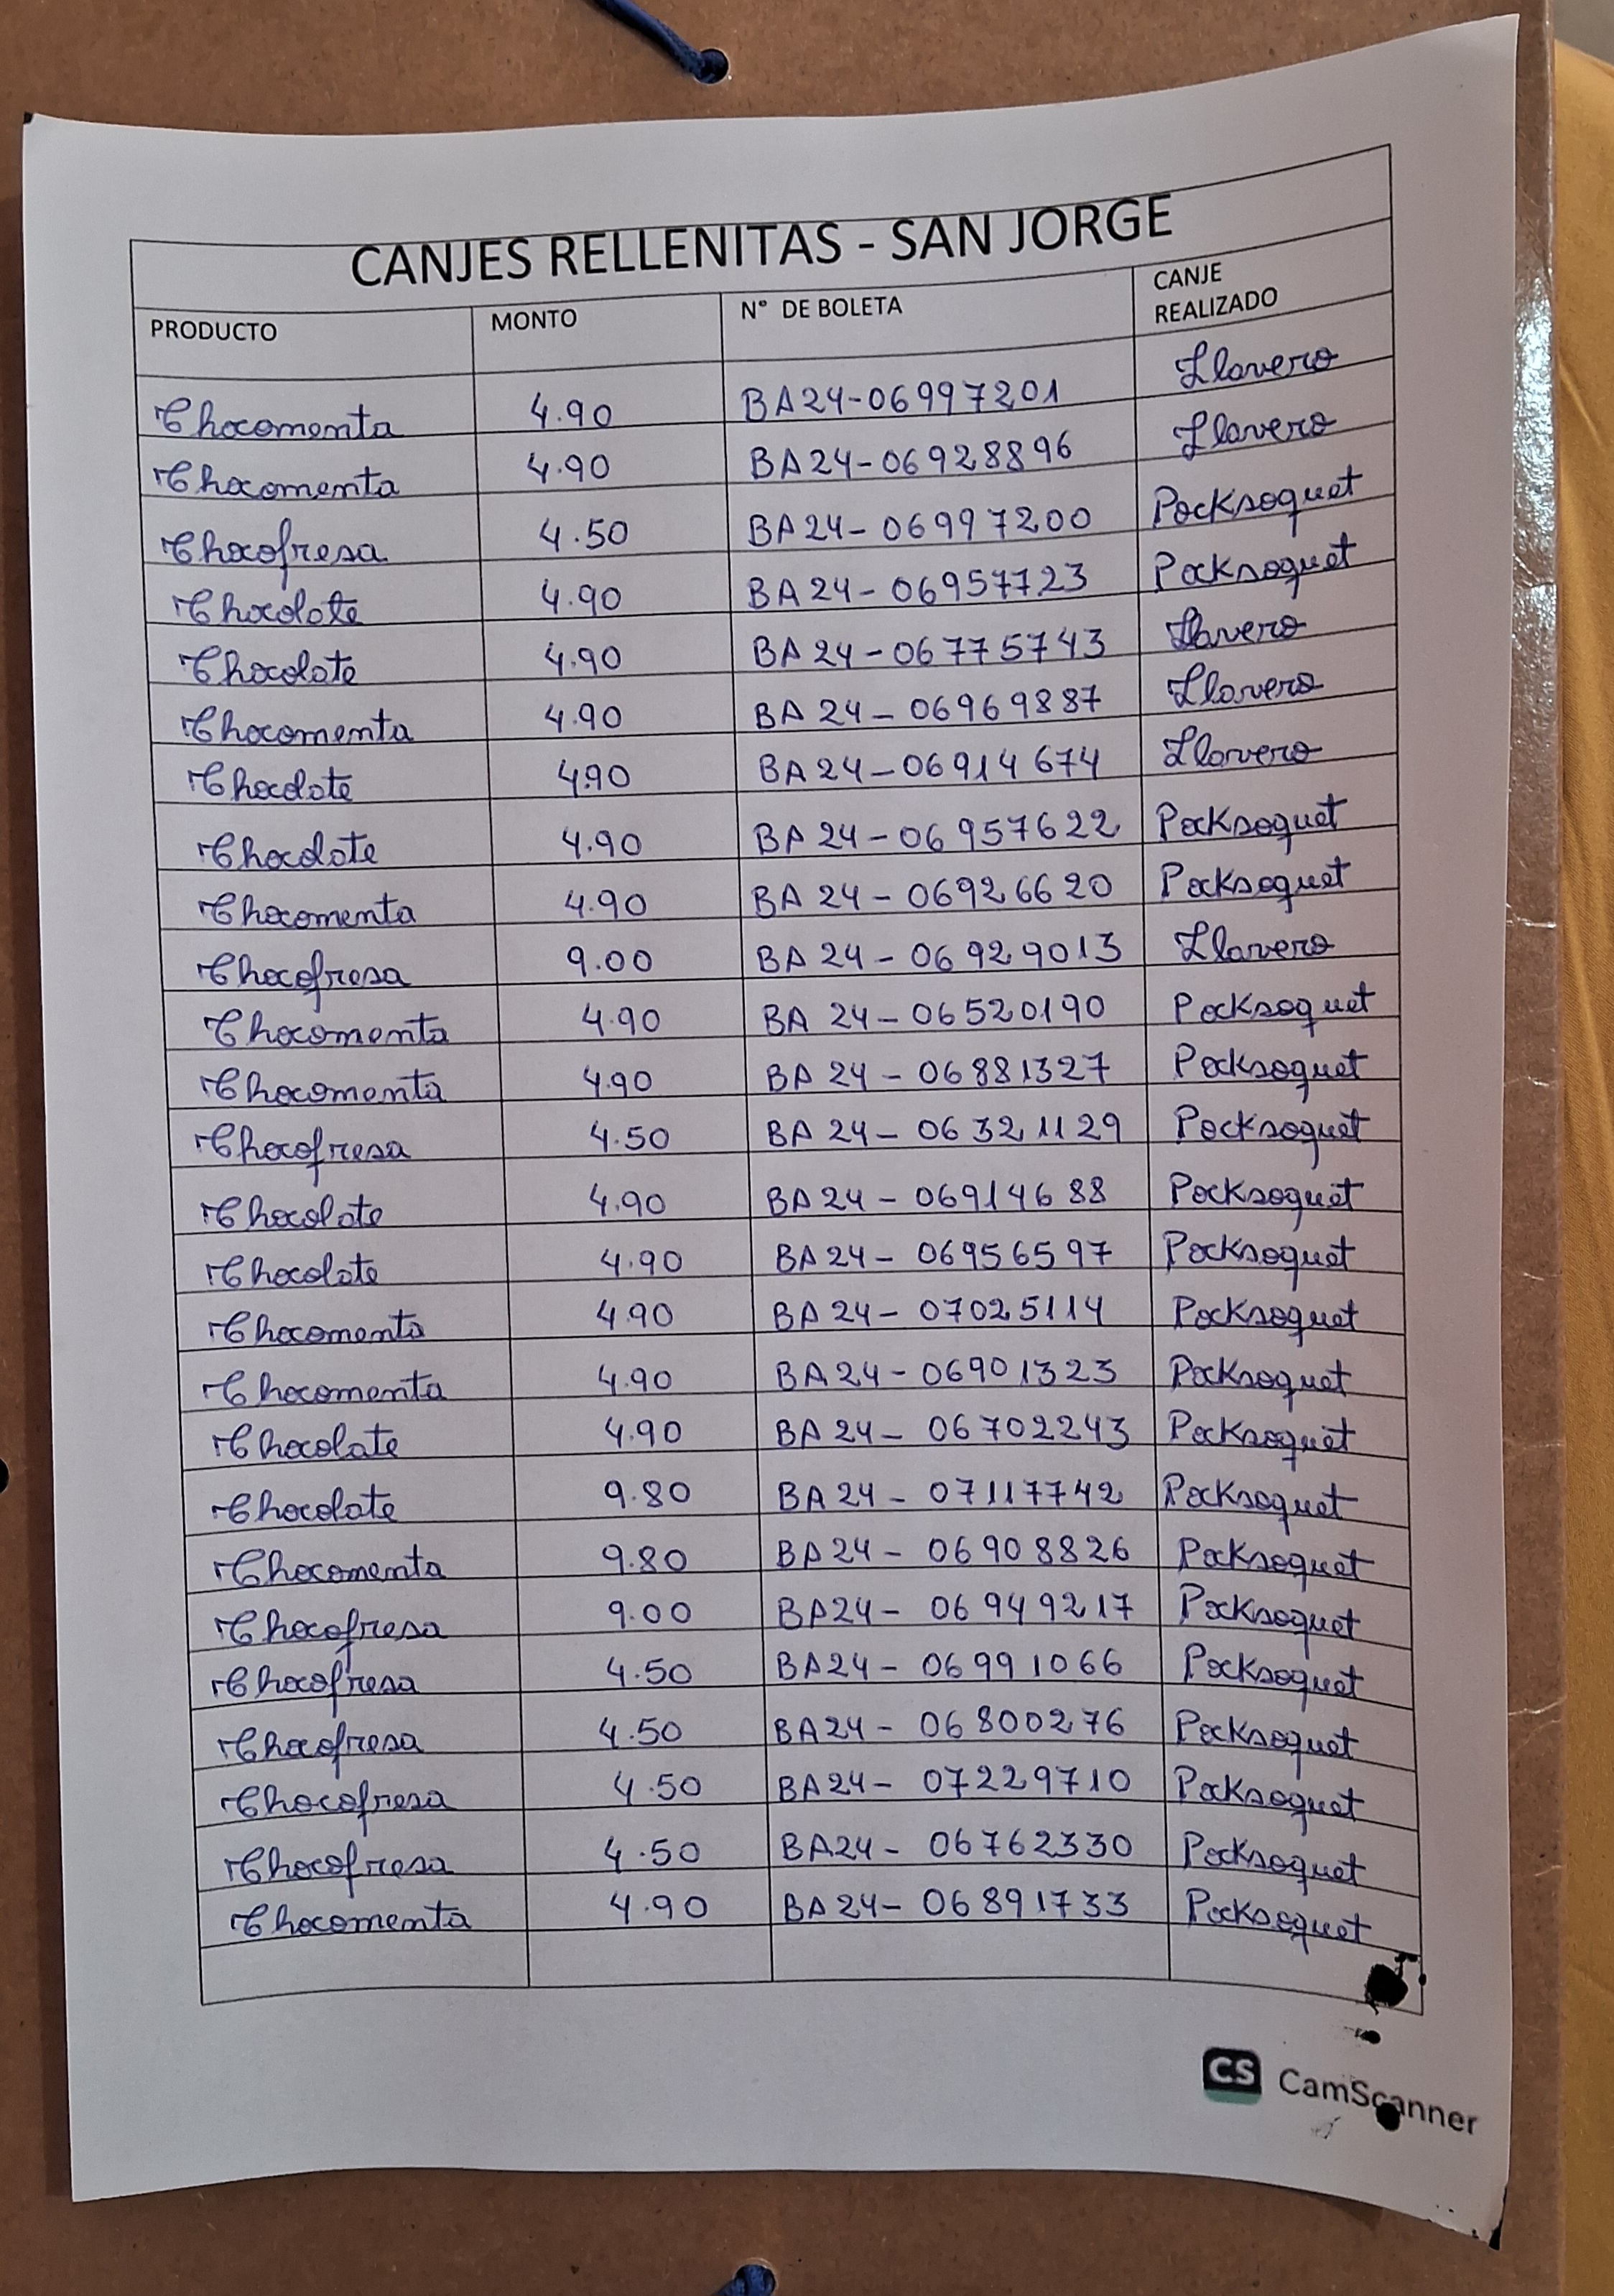 CANJES RELLENITAS - SAN JORGE
PRODUCTO MONTO N° DE BOLETA CANJE REALIZADO
Chocomenta 4.90 BA24-06997201 Llavero
Chocomenta 4.90 BA24-06928896 Llavero
Chocofresa 4.50 BA24-06997200 Pocksoquet
Chocolate 4.90 BA24-06957723 Pocksoquet
Chocolate 4.90 BA24-06775743 Llavero
Chocomenta 4.90 BA24-06969887 Llavero
Chocolate 4.90 BA24-06914674 Llavero
Chocolate 4.90 BA24-06957622 Pocksoquet
Chocomenta 4.90 BA24-06926620 Pocksoquet
Chocofresa 9.00 BA24-06929013 Llavero
Chocomenta 4.90 BA24-06520190 Pocksoquet
Chocomenta 4.90 BA24-06881327 Pocksoquet
Chocofresa 4.50 BA24-06321129 Pocksoquet
Chocolate 4.90 BA24-06914688 Pocksoquet
Chocolate 4.90 BA24-06956597 Pocksoquet
Chocomenta 4.90 BA24-07025114 Pocksoquet
Chocomenta 4.90 BA24-06901323 Pocksoquet
Chocolate 4.90 BA24-06702243 Pocksoquet
Chocolate 9.80 BA24-07117742 Pocksoquet
Chocomenta 9.80 BA24-06908826 Pocksoquet
Chocofresa 9.00 BA24-06949217 Pocksoquet
Chocofresa 4.50 BA24-06991066 Pocksoquet
Chocofresa 4.50 BA24-06800276 Pocksoquet
Chocofresa 4.50 BA24-07229710 Pocksoquet
Chocofresa 4.50 BA24-06762330 Pocksoquet
Chocomenta 4.90 BA24-06891733 Pocksoquet
CS CamScanner